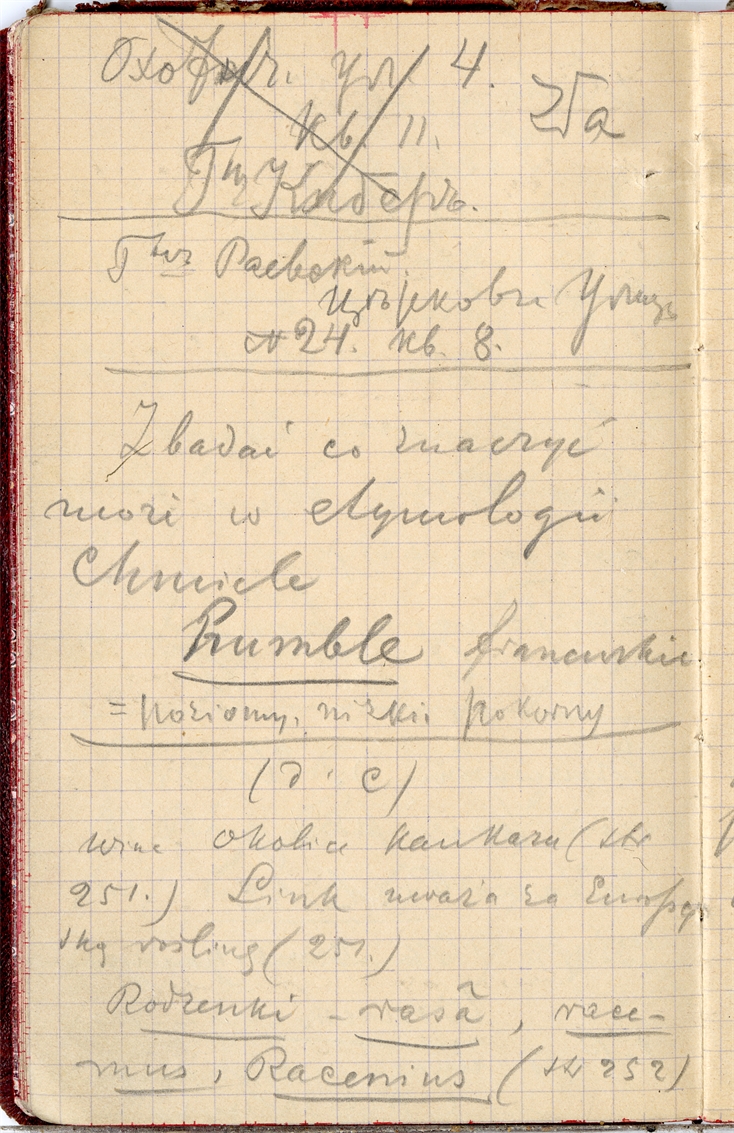 4.
кв. 11. 25a
Раевский
№ 24. кв. 8.
Zbadać co znaczyć
może w etymologii
Chmiele
Humble francuskie
= poziomy, nizki, pokorny
(d. c)
okolice Kaukazu (str
251.) Link uważa za Europej-
ską roślinę (251.)
Rodzenki - rasã, race-
mus, Racemus (str 252)